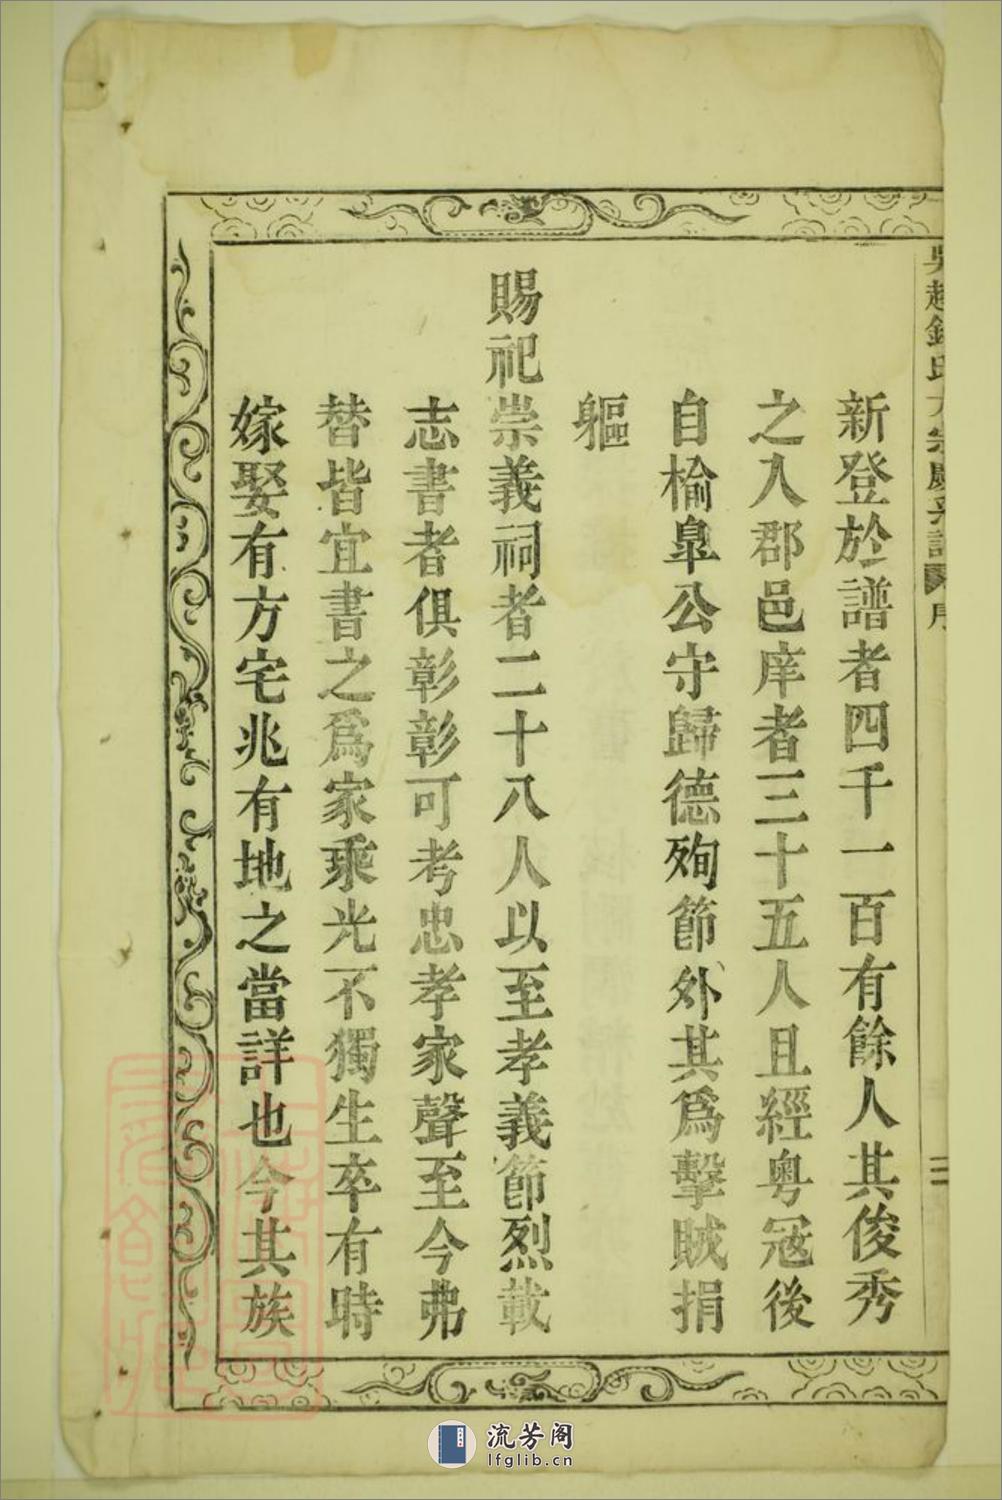 新登於譜者四千一百有餘人其俊秀
之入郡邑庠者三十五人且經粵寇後
自榆臯公守歸德殉節外其爲擊賊捐
軀
賜祀崇義祠者二十八人以至孝義節烈載
志書者俱彰彰可考忠孝家聲至今弗
替皆宜書之爲家乘光不獨生卒有時
嫁娶有方宅兆有地之當詳也今其族
吳越錢氏大宗慶系譜 序
三
流芳阁
lfglib.cn